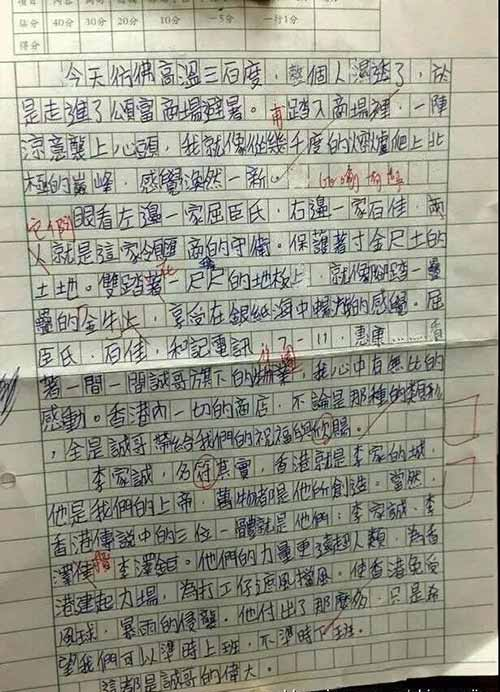 佔分 40分 30分 20分 10分 -5分 一行1分
得分
今天彷彿高溫三百度，整個人濕透了，於
是走進了頌富商場避暑。甫踏入商場裡，一陣
涼意襲上心頭，我就像從幾千度的火爐爬上北
極的巔峰，感覺渙然一新。
眼看左邊一家屈臣氏，右邊一家百佳，兩
人就是這家領匯商的守衛。保護著寸金尺土的
土地。雙踏著一尺尺的地板上，就像腳踏一疊
疊的金牛上，享受在銀紙海中的感覺。屈
臣氏．百佳，和記電訊．7－11．惠康………看
著一間一間誠哥旗下的，我心中有無比的
感動。香港內一切的商店，不論是那種的類型
，全是誠哥帶給我們的祝福與恩賜。
李家誠，名符其實，香港就是李家的城，
他是我們的上帝，萬物都是他所創造。當然，
香港傳說中的三位一體就是他們：李家誠．李
澤楷．李澤鉅。他們的力量更遠超人類，為香
港建起力場，為打工仔遮風擋風，使香港免受
風球，暴雨的侵襲。他付出了那麼多，只是希
望我們可以準時上班，不準時下班。
這都是誠哥的偉大。